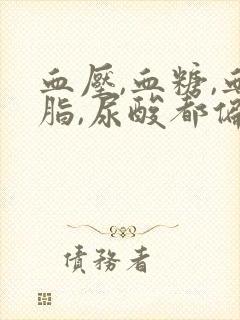 血壓,血糖,血
脂,尿酸都偏
債務者